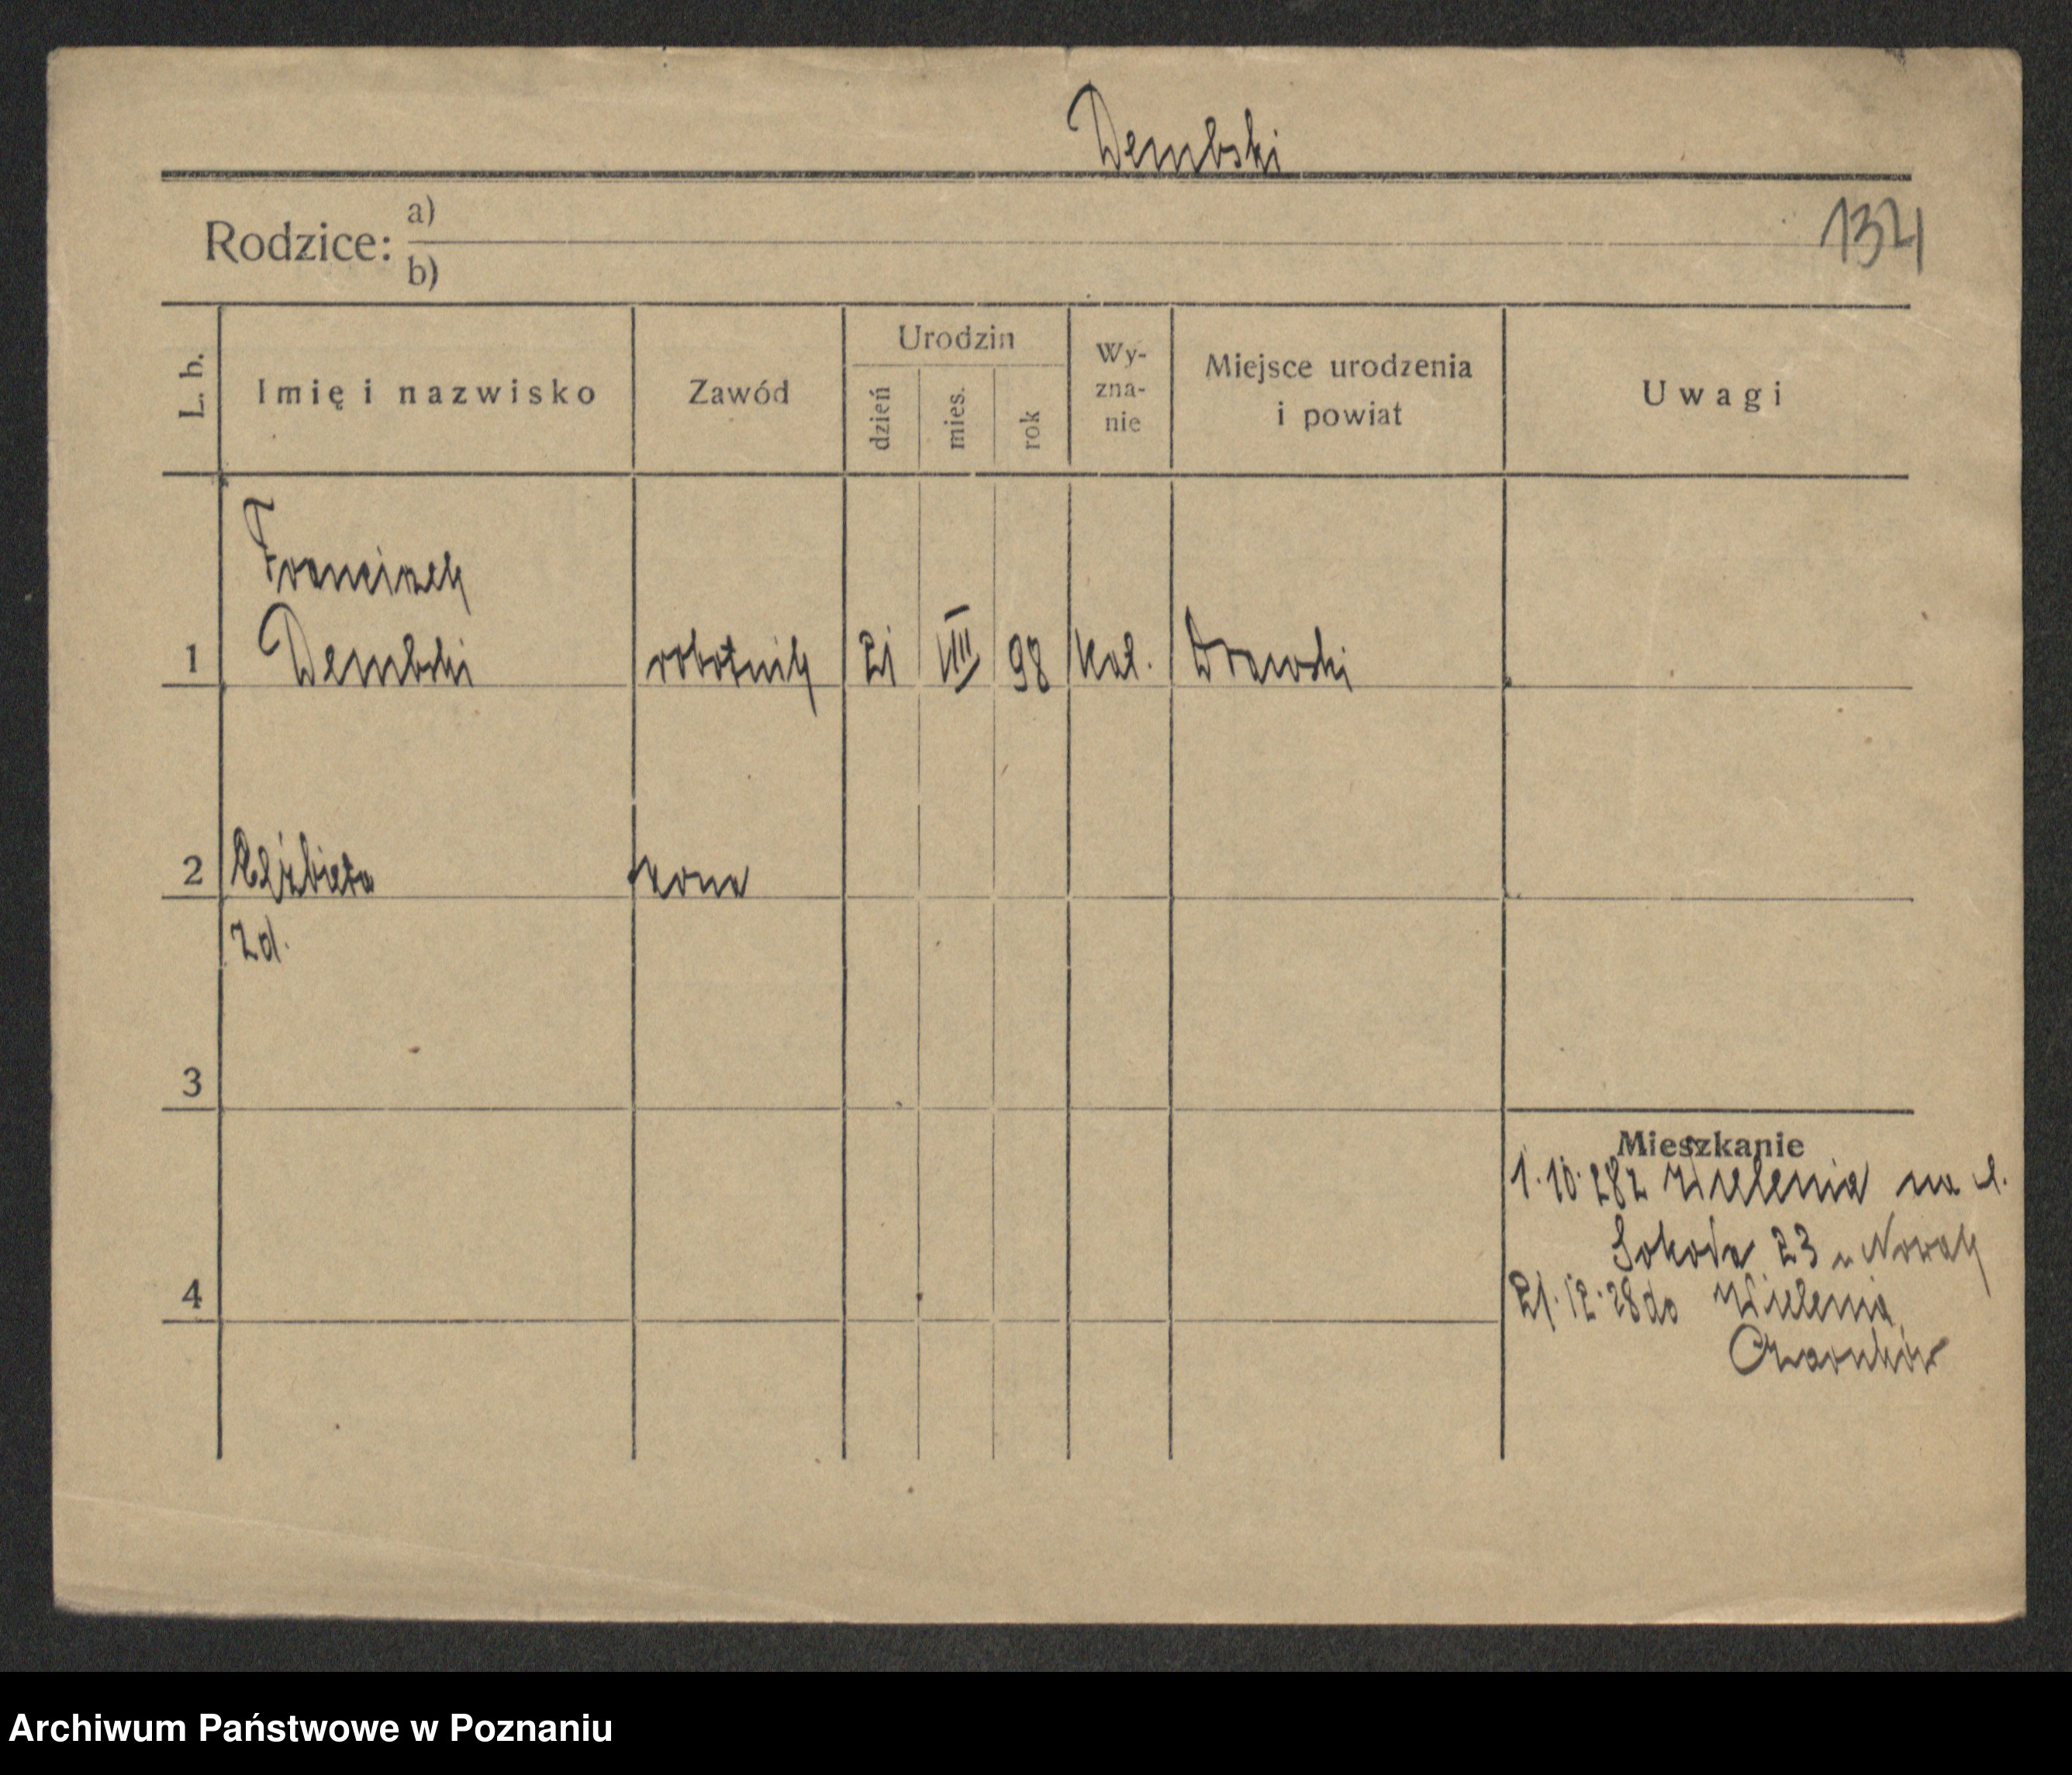 Dembski
134
Rodzice: a)
b)
L. b.
Imię i nazwisko
Zawód
Urodzin
dzień
mies.
rok
Wy-
zna-
nie
Miejsce urodzenia
i powiat
Uwagi
Franciszek
1 Dembski robotnik 21 VIII 98 kat. Drawski
2 Elżbieta żona
zd.
3
Mieszkanie
1. 10. 28 z Wielenia na ul.
Sokoła 23 u Nowak
4
21. 12. 28 do Wielenia
Czarnków
Archiwum Państwowe w Poznaniu